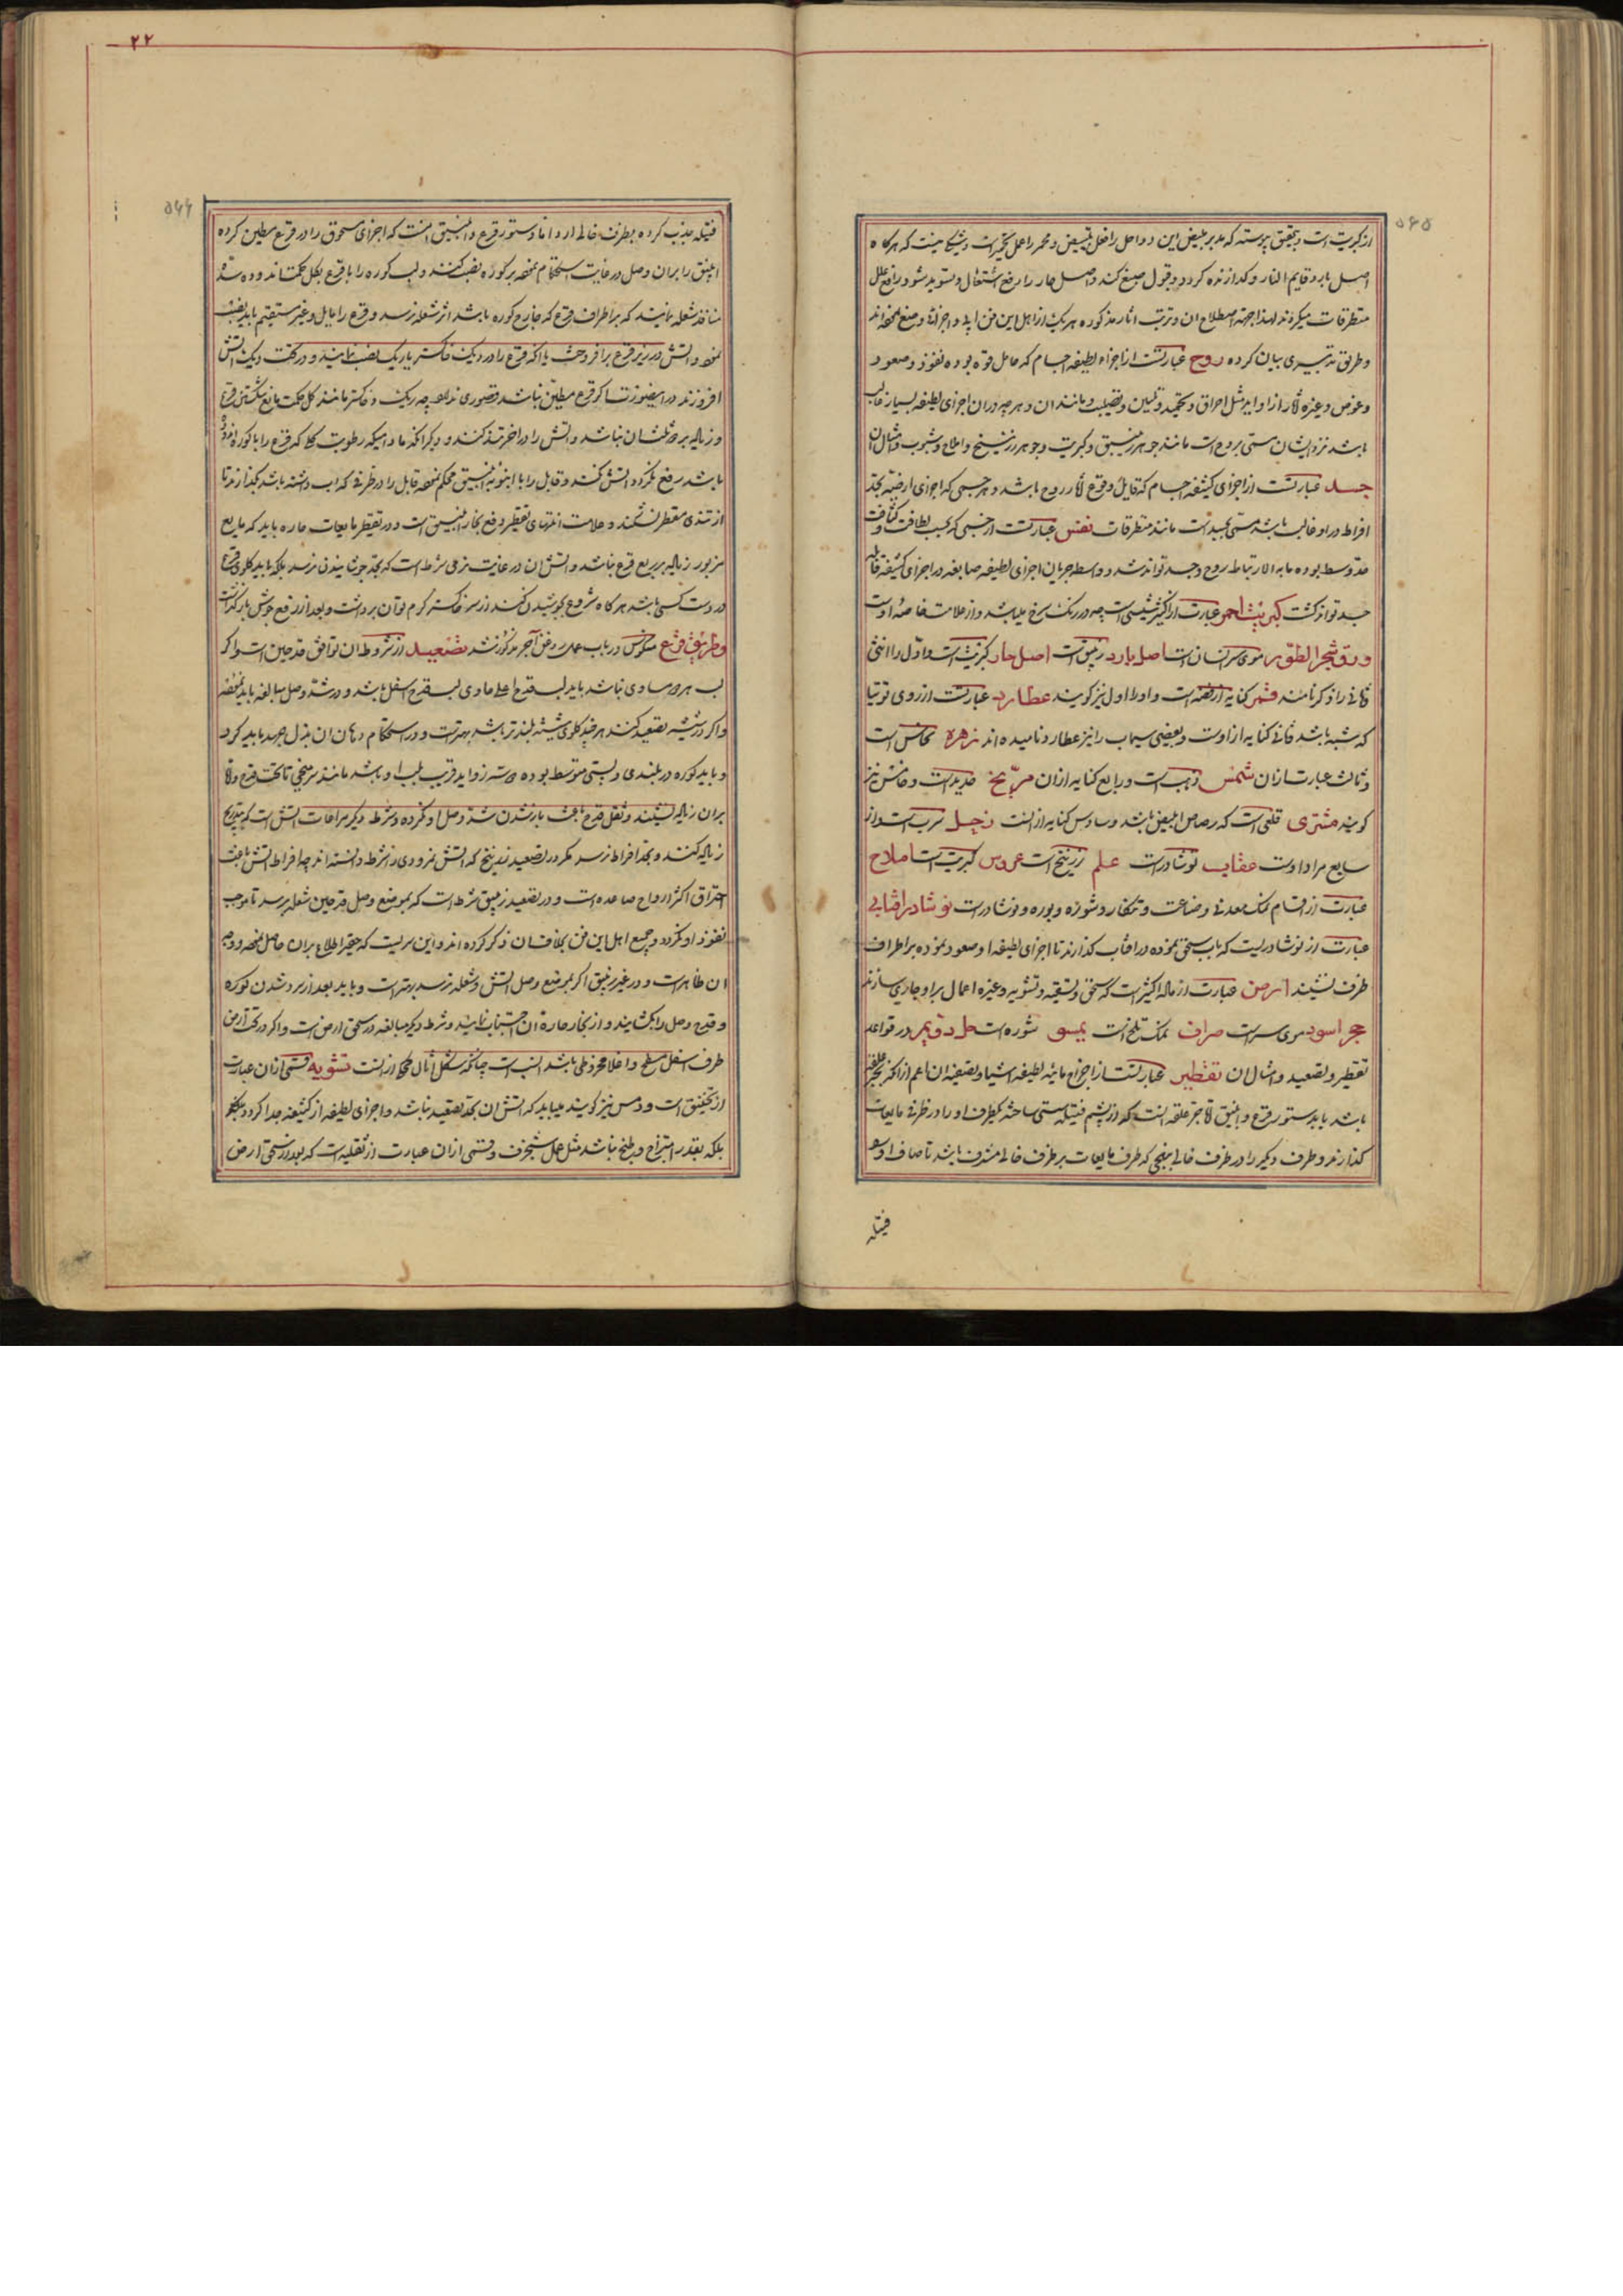 ۵۶۵
از کبریت است و بتحقیق پیوسته که مدبر مبیض این دو اصل را فعل تبییض و محمر را عمل تحمیر است و شکی نیست که هرگاه
اصل بارد قایم النار و گدازنده گردد و قبول صبغ کند و اصل حار را رفع اشتعال و تسوید شود رافع علل
متطرقات میگردند لهذا جهة اصطلاح ان و ترتب اثار مذکوره هر یک از اهل این فن
وطریق تدبیری بیان کرده روح عبارتست از اجزاء لطیفه اجسام که حامل قوه بوده نفوذ و صعود
وغوص وغیره اثار از او اید مثل احراق و تحمید و تلیین و تصلیب و مانند ان و هر چه در ان اجزای لطیفه بسیار غالب
باشد نزد ایشان مسمی بروح است مانند جوهر زیبق و کبریت و جوهر زرنیخ و املاح و شبوب و امثال ان
جسد عبارتست از اجزای کثیفه اجسام که قابل وقوع اثار روح باشد و هر جسمی که اجزای ارضیه بحد
افراط در او غالب باشد مسمی بجسد است مانند متطرقات نفس عبارتست از جسمی که بحسب لطافت و کثافت
متوسط بوده ما به الارتباط روح و جسد تواند شد و واسطه جریان اجزای لطیفه صابغه در اجزای کثیفه قابله
جسد تواند گشت کبریت احمر عبارت از اکثیر شمسی است چه در رنگ سرخ میباشد و از علامت خاصه اوست
ورق شجر الطور موی سر انسان است اصل بارد زیبق است اصل حار کبریت است و اول را انثی
ثانی را ذکر نامند قمر کنایه از فضه است و او را اول نیز گویند عطارد عبارتست از روی توتیا
که شبه باشد ثانی کنایه از اوست و بعضی سیماب را نیز عطارد نامیده اند زهره نحاس است
و ثالث عبارت از ان شمس ذهب است و رابع کنایه از ان مریخ حدید است و خامس نیز
گویند مشتری قلعی است که رصاص ابیض باشد و سادس کنایه از انست زحل سرب است و از
سابع مراد اوست عقاب نوشادر است علم زرنیخ است عروس کبریت است املاح
عبارت از اقسام نمک معدنی و صناعت و تنکار و شوره و بوره و نوشادر است نوشادر افتابی
عبارت از نوشادریست که باب سحق نموده در افتاب گذارند تا اجزای لطیفه او صعود نموده بر اطراف
ظرف نشیند ارض عبارت از ماله اکثیر است که سحق و تسقیه و تشویه و غیره اعمال بر او جاری سازند
حجر اسود موی سر است صراف نمک تلخ است یمسو شوره است طرد قویم در قواعد
تقطیر و تصعید و امثال ان تقطیر عبارتست از اخراج مائیه لطیفه اشیا و تصفیه ان اعم از انکه بجر علقه
باشد یا بدستور قرع و انبیق اما جر علقه انست که از پشم فتیله سستی ساخته یکطرف او را در ظرفی مایعات
گذارند و طرف دیگر را در ظرف خالی بنهجی که طرف مایعات بر ظرف خالی مشرف باشد تا صاف او سو
فتیله
۲۲
۵۶۶
فتیله جذب کرده بظرف خالی ارد اما دستور قرع و انبیق انست که اجزای مسحوق را در قرع مطین کرده
انبیق را بران وصل در غایت استحکام نموده بر کوره نصب کنند و لب کوره را با قرع بگل حکمت اندوده سد
منافذ شعله نمایند که بر اطراف قرع که خارج کوره باشد اثر شعله نرسد و قرع را مایل و غیر مستقیم باید نصب
نمود و اتش در زیر قرع بر افروخت یا انکه قرع را در دیک خاکستر یا ریک نصب نمایند و در تحت دیک اتش
افروزند در اینصورت اگر قرع مطین نباشد قصوری ندارد چه ریک و خاکستر مانند گل حکمت مانع شکستن قرع
و زیاله بر دو ثلث ان نباشد و اتش را در اخر تند کنند و دیگر انکه مادامیکه رطوبت گل که قرع را با کوره اندوده
باشند رفع نگردد اتش نکنند و قابل را با انبوبه انبیق محکم نموده قابل را در ظرفی که اب داشته باشد گذارند تا
از تندی مقطر نشکند و علامت انتهای تقطیر رفع بخار انبیق است و در تقطیر مایعات حاره باید که مایع
مزبور زیاله بر ربع قرع نباشد و اتش ان در غایت نرمی شرط است که بحد جوشانیدن نرسد بلکه باید گلوی قرع
در دست کسی باشد هرگاه شروع بجوشیدن کند از سر خاکستر گرم توان برداشت و بعد از رفع جوش باز گذاشت
وطریق قرع منکوس در باب عمل روغن اجر مذکور شد تصعید از شروط ان توافق قدحین است و اگر
لب هر دو مساوی نباشد باید لب قدح اعلا حاوی لب قدح اسفل باشد و در شد وصل مبالغه باید نمود
و اگر در شیشه تصعید کنند هر چند گلوی شیشه بلندتر باشد بهتر است و در استحکام دهان ان بذل جهد باید کرد
و باید کوره در بلندی و پستی متوسط بوده زواید قریب بلب او باشد مانند سر میخی تا تحت قدح
بران زیاله نشیند و ثقل قدح باعث باز شدن شد وصل او نگردد و شرط دیگر مراعات اتش است که بتدریج
زیاله کنند و بحد افراط نرسد مگر در تصعید زرنیخ که اتش نمرودی را شرط دانسته اند چه افراط اتش باعث
احتراق اکثر ارواح صاعده است و در تصعید زیبق شرط است که بموضع وصل قدحین شعله برسد تا موجب
نفوذ او نگردد و جمیع اهل این فن بخلاف ان ذکر کرده اند و این سریست که حقیر اطلاع بران حاصل نموده و وجه
ان ظاهر است و در غیر زیبق اگر بموضع وصل اتش و شعله نرسد بهتر است و باید بعد از سرد شدن کوره
و قدح وصل را بگشایند و از بخار حاره ان اجتناب نمایند و شرط دیگر مبالغه در سحق ارض است و اگر در تحت ارض
طرف اسفل مسطح و اعلا مخروطی باشد انسب است چنانکه شکل اثال محکی از انست تشویه قسمی از ان عبارت
از تخنیق است و دمس نیز گویند میباید که اتش ان بحد تصعید نباشد و اجزای لطیفه از کثیفه جدا نگردد
بلکه بقدر امتزاج و طبخ باشد مثل عمل شنجرف و قسمی از ان عبارت از تقلیه است که بعد از سحق ارض